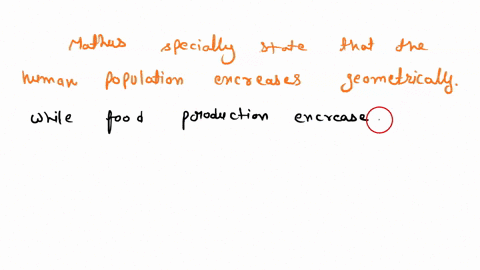 Mathus specially state that the
human population encreases geometrically.
while food production encrease